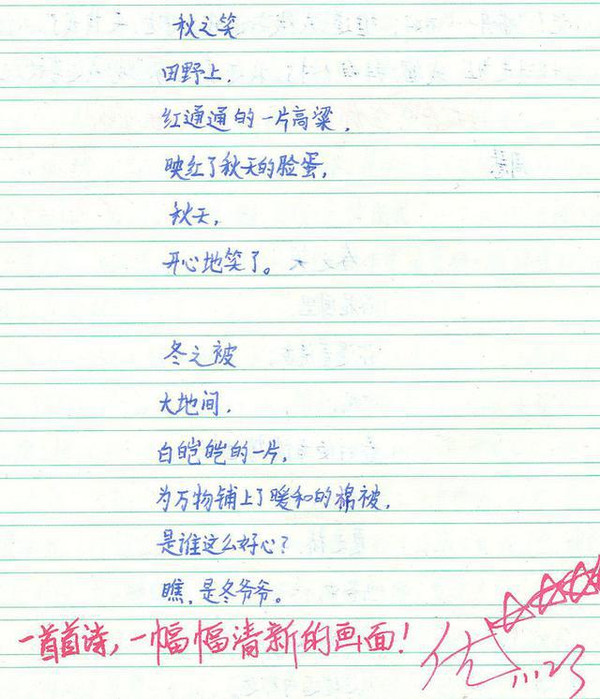 秋之笑
田野上，
红通通的一片高粱，
映红了秋天的脸蛋，
秋天，
开心地笑了。
冬之被
大地间，
白皑皑的一片，
为万物铺上了暖和的棉被，
是谁这么好心？
瞧，是冬爷爷。
一首首诗，一幅幅清新的画面！
优 11.23